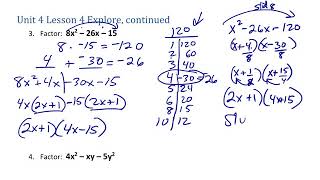 Unit 4 Lesson 4 Explore, continued
3. Factor: 8x² – 26x – 15
8 · -15 = -120
4 + -30 = -26
8x² + 4x - 30x - 15
4x(2x+1) -15(2x+1)
(2x+1)(4x-15)
120
1 | 120
2 | 60
3 | 40
4 - 30 = 26
5 | 24
6 | 20
8 | 15
10 | 12
slide
x² - 26x - 120
(x + 4/8)(x - 30/8)
(x + 1/2)(x + 15/4)
(2x+1)(4x-15)
4. Factor: 4x² – xy – 5y²